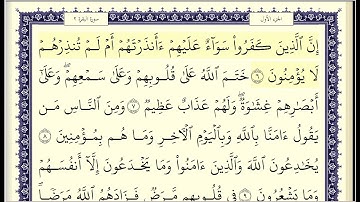 الجزء الأول سورة البقرة ٢
إِنَّ ٱلَّذِينَ كَفَرُوا۟ سَوَآءٌ عَلَيْهِمْ ءَأَنذَرْتَهُمْ أَمْ لَمْ تُنذِرْهُمْ
لَا يُؤْمِنُونَ ٦ خَتَمَ ٱللَّهُ عَلَىٰ قُلُوبِهِمْ وَعَلَىٰ سَمْعِهِمْ ۖ وَعَلَىٰٓ
أَبْصَٰرِهِمْ غِشَٰوَةٌ ۖ وَلَهُمْ عَذَابٌ عَظِيمٌ ٧ وَمِنَ ٱلنَّاسِ مَن
يَقُولُ ءَامَنَّا بِٱللَّهِ وَبِٱلْيَوْمِ ٱلْءَاخِرِ وَمَا هُم بِمُؤْمِنِينَ ٨
يُخَٰدِعُونَ ٱللَّهَ وَٱلَّذِينَ ءَامَنُوا۟ وَمَا يَخْدَعُونَ إِلَّآ أَنفُسَهُمْ
وَمَا يَشْعُرُونَ ٩ فِى قُلُوبِهِم مَّرَضٌ فَزَادَهُمُ ٱللَّهُ مَرَضًا ۖ